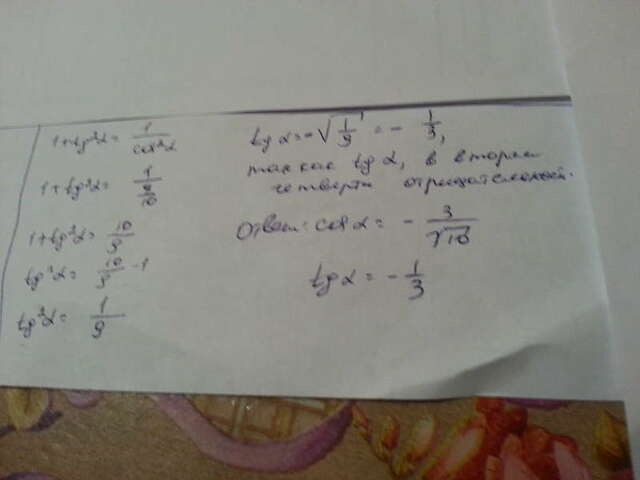 1+tg²α = 1/cos²α
1+tg²α = 1/(9/10)
1+tg²α = 10/9
tg²α = 10/9 - 1
tg²α = 1/9
tg α = -√(1/9) = - 1/3,
так как tg α, в втором
четверти отрицательный.
Ответ: cos α = - 3/√10
tg α = - 1/3